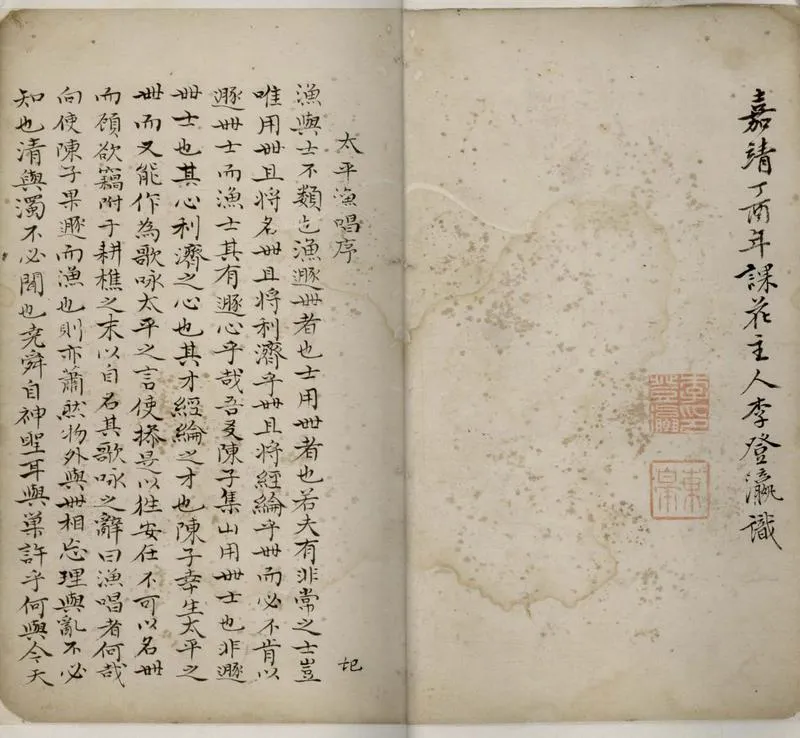 嘉靖丁酉年課花主人李登瀛識
李印登瀛
東皋
太平漁唱序
漁與士不類迄漁遯世者也士用世者也若夫有非常之士豈
唯用世且將名世且將利濟乎世且將經綸乎世而必不肯以
遯世士而漁士其有遯心乎哉吾友陳子集山用世士也非遯
世士也其心利濟之心也其才經綸之才也陳子幸生太平之
世而又能作為歌咏太平之言使操是以徃安仕不可以名世
而顧欲竊附于耕樵之末以自名其歌咏之辭曰漁唱者何哉
向使陳子果遯而漁也則亦蕭然物外與世相忘理與亂不必
知也清與濁不必聞也堯舜自神聖耳與巢許乎何與今天